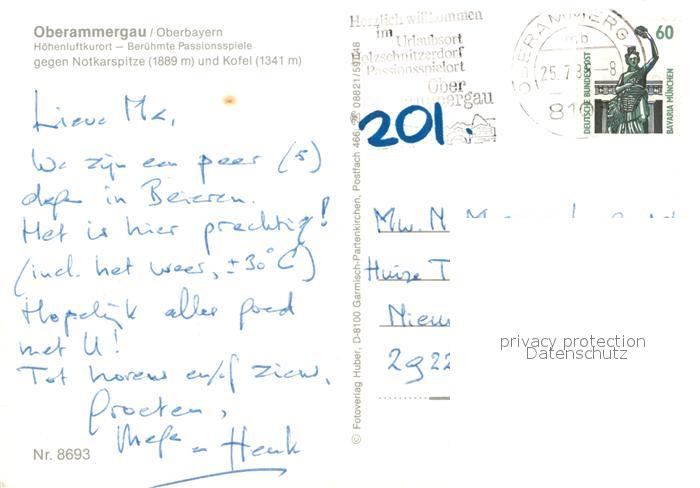 Oberammergau / Oberbayern
Höhenluftkurort — Berühmte Passionsspiele
gegen Notkarspitze (1889 m) und Kofel (1341 m)
We zijn een paar (5)
dagen in Beieren.
Het is hier prachtig!
(incl. het weer, ±30°C)
Hopelijk alles goed
met U!
Tot horens en/of ziens,
Groeten,
Henk
Nr. 8693
© Fotoverlag Huber, D-8100 Garmisch-Partenkirchen, Postfach 466 ☎ 08821/59
Herzlich willkommen
im
Urlaubsort
Holzschnitzerdorf
Passionsspielort
Ober
ammergau
OBERAMMERG
25.7.
-8
81
60
DEUTSCHE BUNDESPOST
BAVARIA MÜNCHEN
201.
Mw. N
Huize T
Nieu
2922
privacy protection
Datenschutz